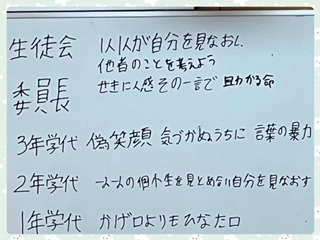 生徒会 1人1人が自分を見なおし
他者のことを考えよう
委員長 せきにん感その一言で 助かる命
3年学代 偽笑顔 気づかぬうちに 言葉の暴力
2年学代 一人一人の個个生を見とめない自分を見なおす
1年学代 かげ口よりもひなた口